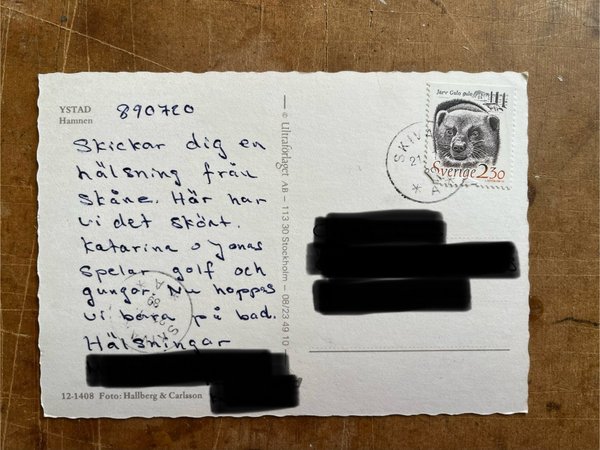 YSTAD
Hamnen
890720
Skickar dig en
hälsning från
Skåne. Här har
vi det skönt.
Katarina o Jonas
spelar golf och
gungor. Nu hoppas
vi bara på bad.
Hälsningar
12-1408 Foto: Hallberg & Carlsson
© Ultraförlaget AB – 113 30 Stockholm – 08/23 49 10
Järv Gulo gulo
Sverige 2.30
SKIV
21
* A